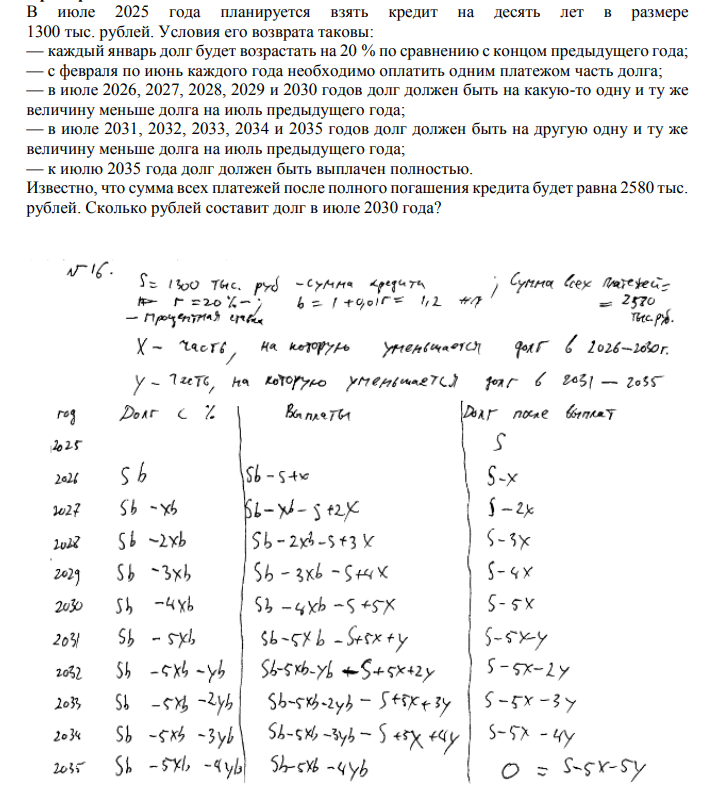 В июле 2025 года планируется взять кредит на десять лет в размере
1300 тыс. рублей. Условия его возврата таковы:
— каждый январь долг будет возрастать на 20 % по сравнению с концом предыдущего года;
— с февраля по июнь каждого года необходимо оплатить одним платежом часть долга;
— в июле 2026, 2027, 2028, 2029 и 2030 годов долг должен быть на какую-то одну и ту же
величину меньше долга на июль предыдущего года;
— в июле 2031, 2032, 2033, 2034 и 2035 годов долг должен быть на другую одну и ту же
величину меньше долга на июль предыдущего года;
— к июлю 2035 года долг должен быть выплачен полностью.
Известно, что сумма всех платежей после полного погашения кредита будет равна 2580 тыс.
рублей. Сколько рублей составит долг в июле 2030 года?
№16.
S = 1300 тыс. руб - сумма кредита ; Сумма всех платежей =
r = 20% - ; b = 1 + 0,01r = 1,2 = 2580
- процентная ставка тыс руб.
X - часть, на которую уменьшается долг в 2026-2030 г.
Y - часть, на которую уменьшается долг в 2031 - 2035
год Долг с % Выплаты Долг после выплат
2025 S
2026 Sb Sb-S+x S-x
2027 Sb -xb Sb-xb-S+2x S-2x
2028 Sb -2xb Sb-2xb-S+3x S-3x
2029 Sb -3xb Sb-3xb-S+4x S-4x
2030 Sb -4xb Sb-4xb-S+5x S-5x
2031 Sb -5xb Sb-5xb-S+5x+y S-5x-y
2032 Sb -5xb -yb Sb-5xb-yb-S+5x+2y S-5x-2y
2033 Sb -5xb -2yb Sb-5xb-2yb-S+5x+3y S-5x-3y
2034 Sb -5xb -3yb Sb-5xb-3yb-S+5x+4y S-5x-4y
2035 Sb -5xb -4yb Sb-5xb-4yb 0 = S-5x-5y